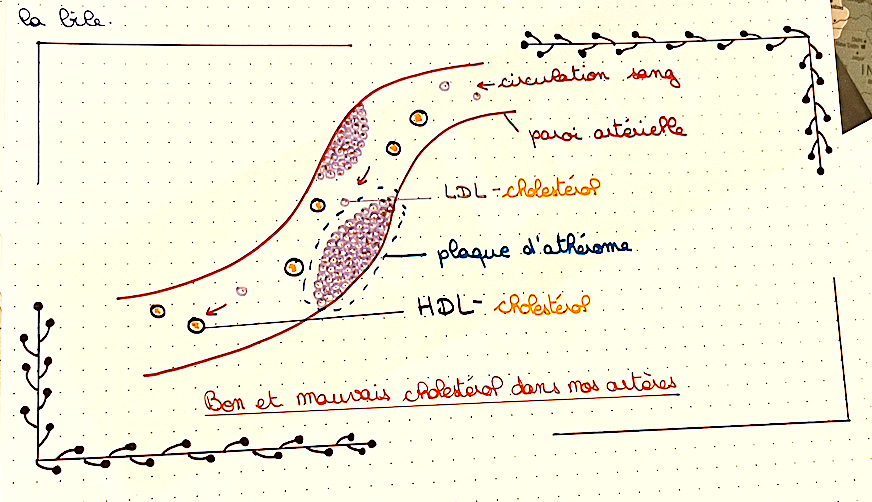 la bile.
circulation sang
paroi artérielle
LDL-cholestérol
plaque d'athérome
HDL-cholestérol
Bon et mauvais cholestérol dans nos artères